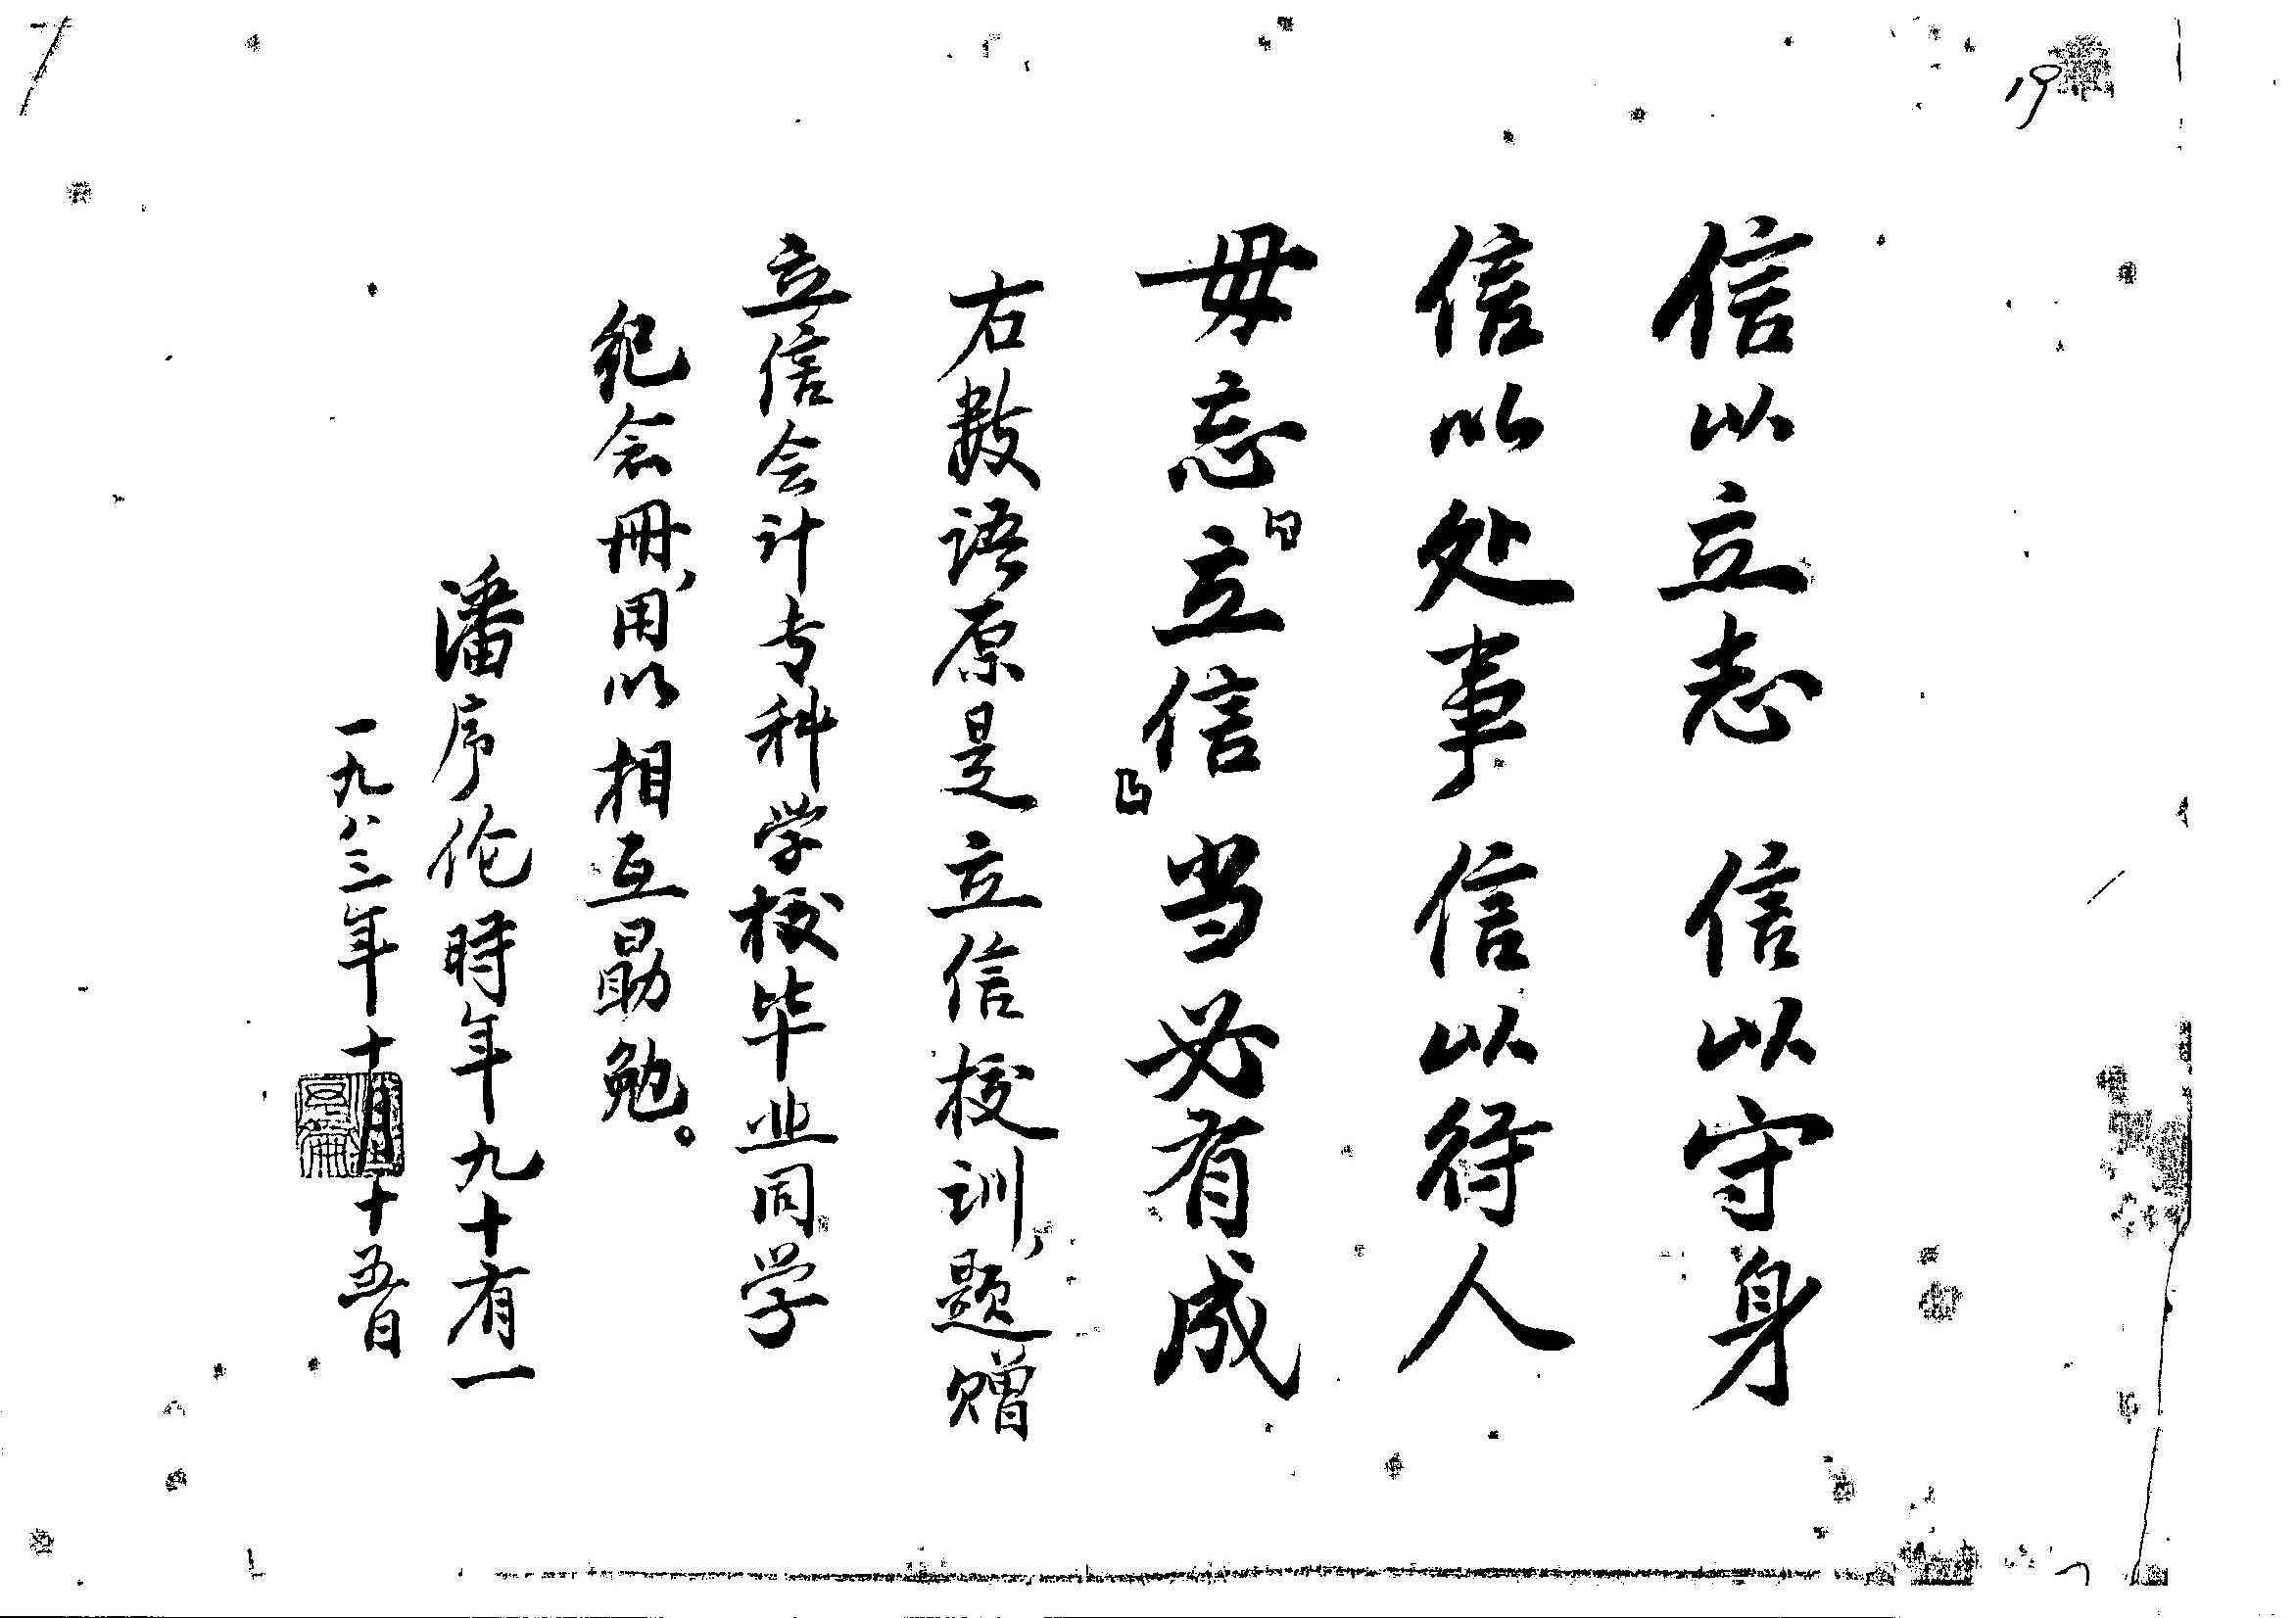 信以立志 信以守身
信以处事 信以待人
毋忘『立信』当必有成
右数语原是立信校训,题赠
立信会计专科学校毕业同学
纪念册,用以相互勖勉。
潘序伦时年九十有一
一九八三年十月十五日
19